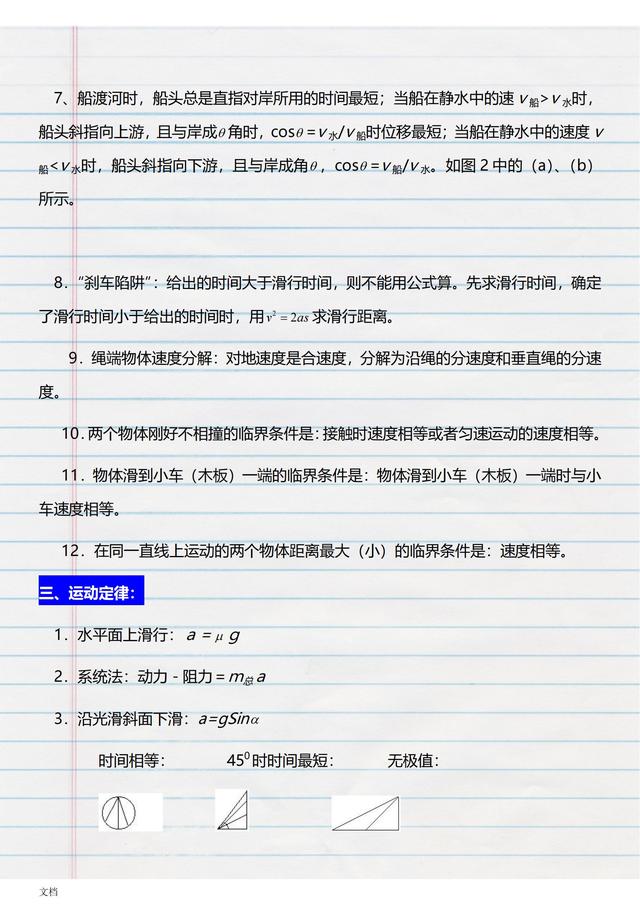 7、船渡河时，船头总是直指对岸所用的时间最短；当船在静水中的速 v船>v水时，
船头斜指向上游，且与岸成θ角时，cosθ=v水/v船时位移最短；当船在静水中的速度 v
船<v水时，船头斜指向下游，且与岸成角θ，cosθ=v船/v水。如图 2 中的（a）、（b）
所示。
8．“刹车陷阱”：给出的时间大于滑行时间，则不能用公式算。先求滑行时间，确定
了滑行时间小于给出的时间时，用v²=2as求滑行距离。
9．绳端物体速度分解：对地速度是合速度，分解为沿绳的分速度和垂直绳的分速
度。
10.两个物体刚好不相撞的临界条件是：接触时速度相等或者匀速运动的速度相等。
11．物体滑到小车（木板）一端的临界条件是：物体滑到小车（木板）一端时与小
车速度相等。
12．在同一直线上运动的两个物体距离最大（小）的临界条件是：速度相等。
三、运动定律：
1．水平面上滑行：a =μg
2．系统法：动力－阻力＝m总a
3．沿光滑斜面下滑：a=gSinα
时间相等： 45⁰时时间最短： 无极值：
文档